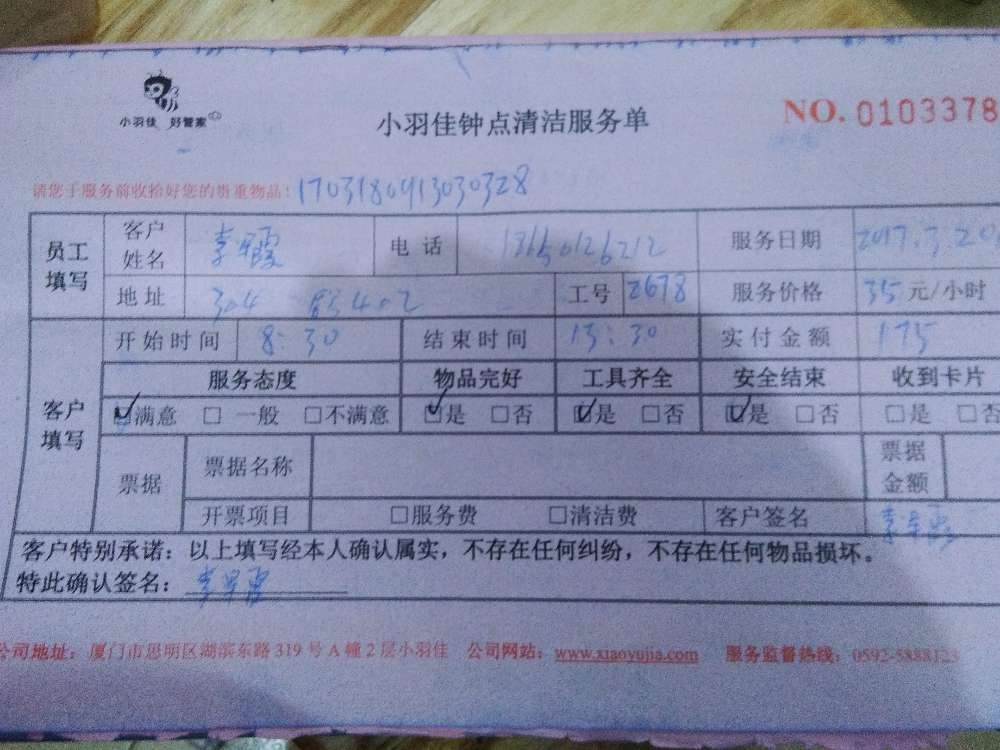 小羽佳 好管家
小羽佳钟点清洁服务单
NO. 0103378
请您于服务前收拾好您的贵重物品!
员工填写 客户姓名 李 霞 电话 服务日期 2017.3.20
地址 304 402 工号 2678 服务价格 35 元/小时
客户填写 开始时间 8:30 结束时间 13:30 实付金额 175
服务态度 物品完好 工具齐全 安全结束 收到卡片
☑满意 □ 一般 □不满意 ☑是 □否 ☑是 □否 ☑是 □否 □是 □否
票据 票据名称 票据金额
开票项目 □服务费 □清洁费 客户签名
客户特别承诺:以上填写经本人确认属实,不存在任何纠纷,不存在任何物品损坏。
特此确认签名:
公司地址:厦门市思明区湖滨东路319号A幢2层小羽佳 公司网站:www.xiaoyujia.com 服务监督热线:0592-5888123